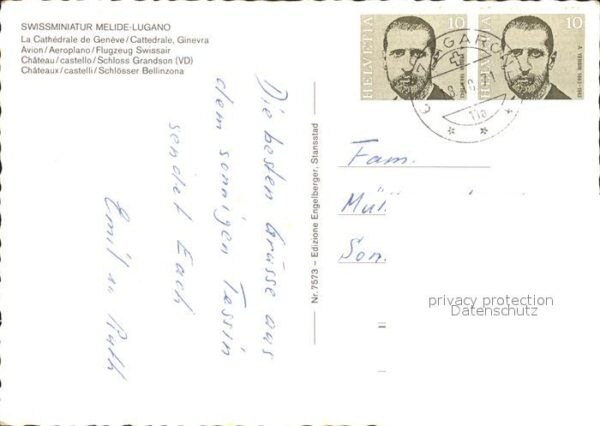 SWISSMINIATUR MELIDE-LUGANO
La Cathédrale de Genève/Cattedrale, Ginevra
Avion/Aeroplano/Flugzeug Swissair
Château/castello/Schloss Grandson (VD)
Châteaux/castelli/Schlösser Bellinzona
Die besten Grüsse aus
dem sonnigen Tessin
sendet Euch
Emil u. Ruth
Nr. 7573 – Edizione Engelberger, Stansstad
HELVETIA 10
HELVETIA 10
A. YERSIN 1863-1943
Fam.
Mül
Son.
privacy protection
Datenschutz